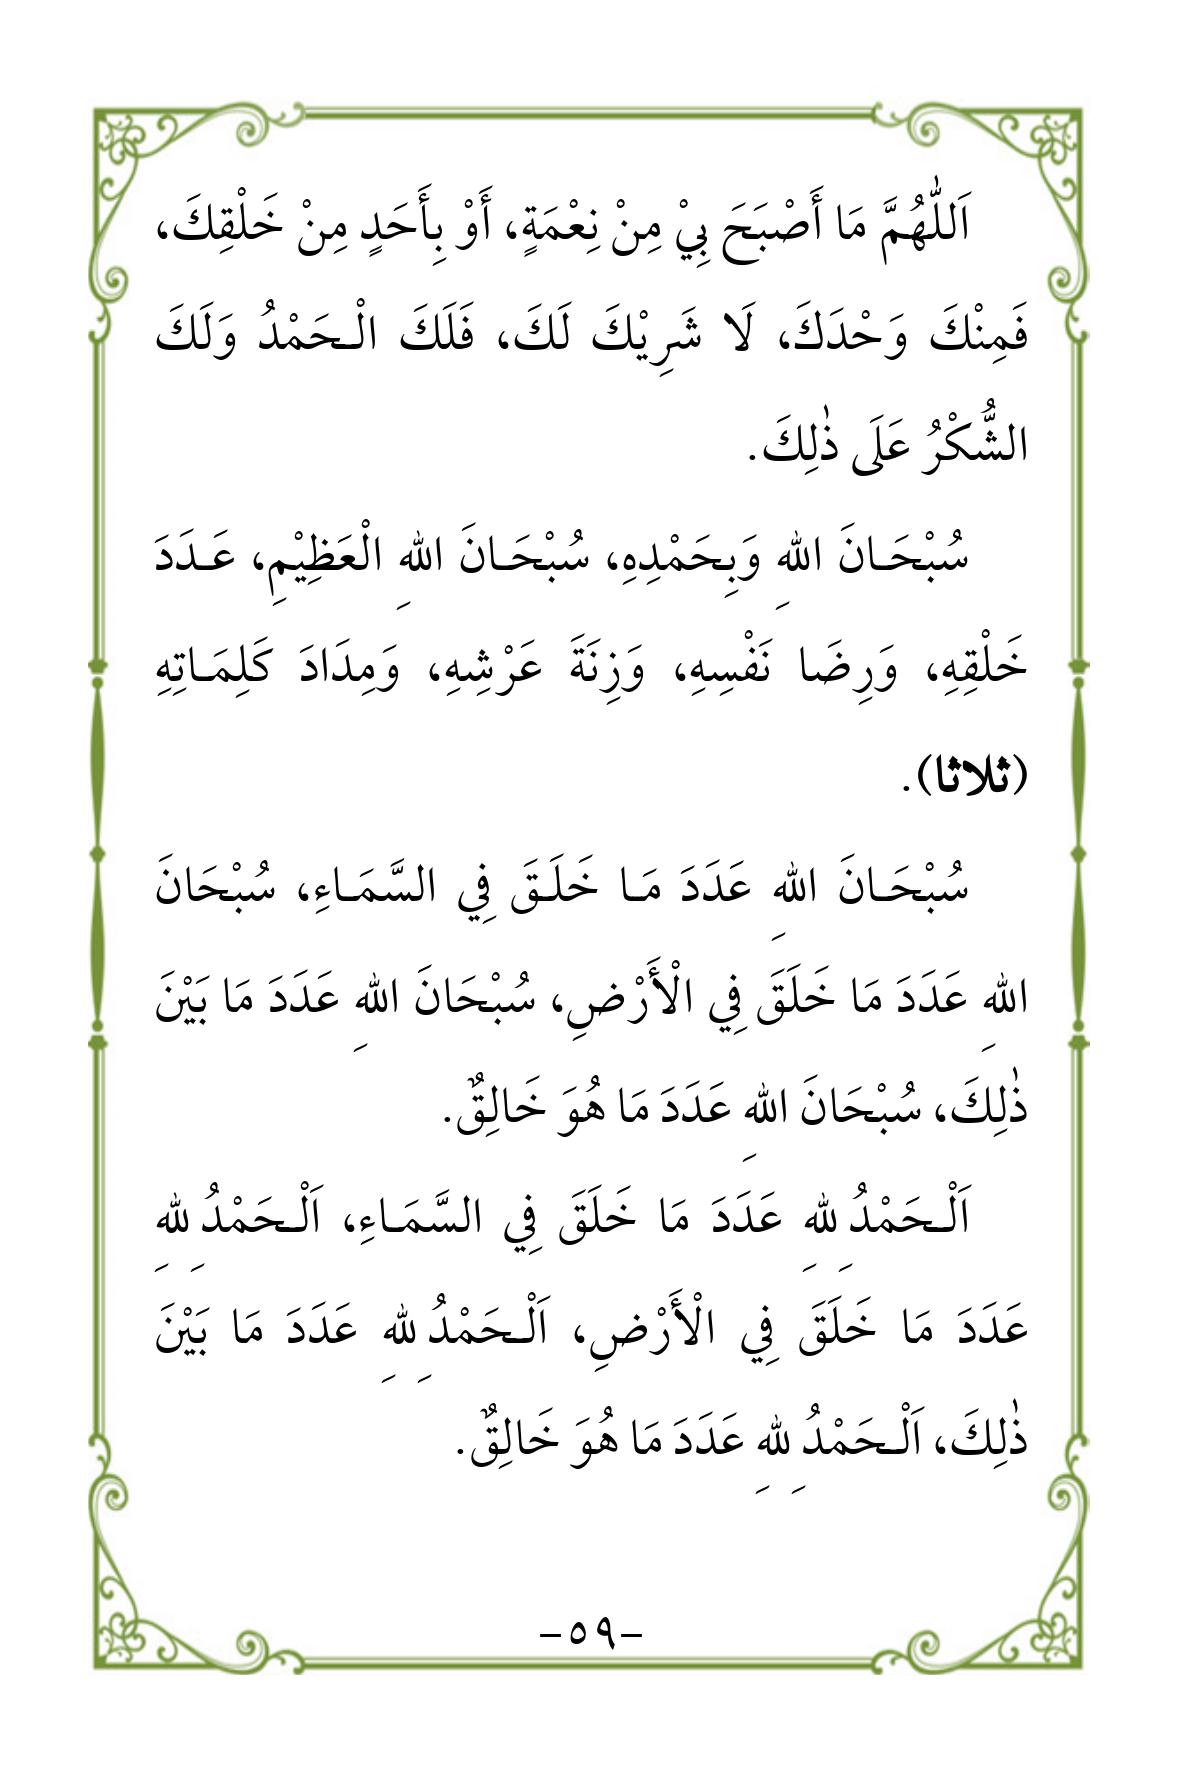 اَللّٰهُمَّ مَا أَصْبَحَ بِيْ مِنْ نِعْمَةٍ، أَوْ بِأَحَدٍ مِنْ خَلْقِكَ،
فَمِنْكَ وَحْدَكَ، لَا شَرِيْكَ لَكَ، فَلَكَ الْـحَمْدُ وَلَكَ
الشُّكْرُ عَلَى ذٰلِكَ.
سُبْحَـانَ اللهِ وَبِحَمْدِهِ، سُبْحَـانَ اللهِ الْعَظِيْمِ، عَـدَدَ
خَلْقِهِ، وَرِضَا نَفْسِهِ، وَزِنَةَ عَرْشِهِ، وَمِدَادَ كَلِمَـاتِهِ
(ثلاثا).
سُبْحَـانَ اللهِ عَدَدَ مَـا خَلَـقَ فِي السَّمَـاءِ، سُبْحَانَ
اللهِ عَدَدَ مَا خَلَقَ فِي الْأَرْضِ، سُبْحَانَ اللهِ عَدَدَ مَا بَيْنَ
ذٰلِكَ، سُبْحَانَ اللهِ عَدَدَ مَا هُوَ خَالِقٌ.
اَلْـحَمْدُ لِلهِ عَدَدَ مَا خَلَقَ فِي السَّمَـاءِ، اَلْـحَمْدُ لِلهِ
عَدَدَ مَا خَلَقَ فِي الْأَرْضِ، اَلْـحَمْدُ لِلهِ عَدَدَ مَا بَيْنَ
ذٰلِكَ، اَلْـحَمْدُ لِلهِ عَدَدَ مَا هُوَ خَالِقٌ.
-٥٩-